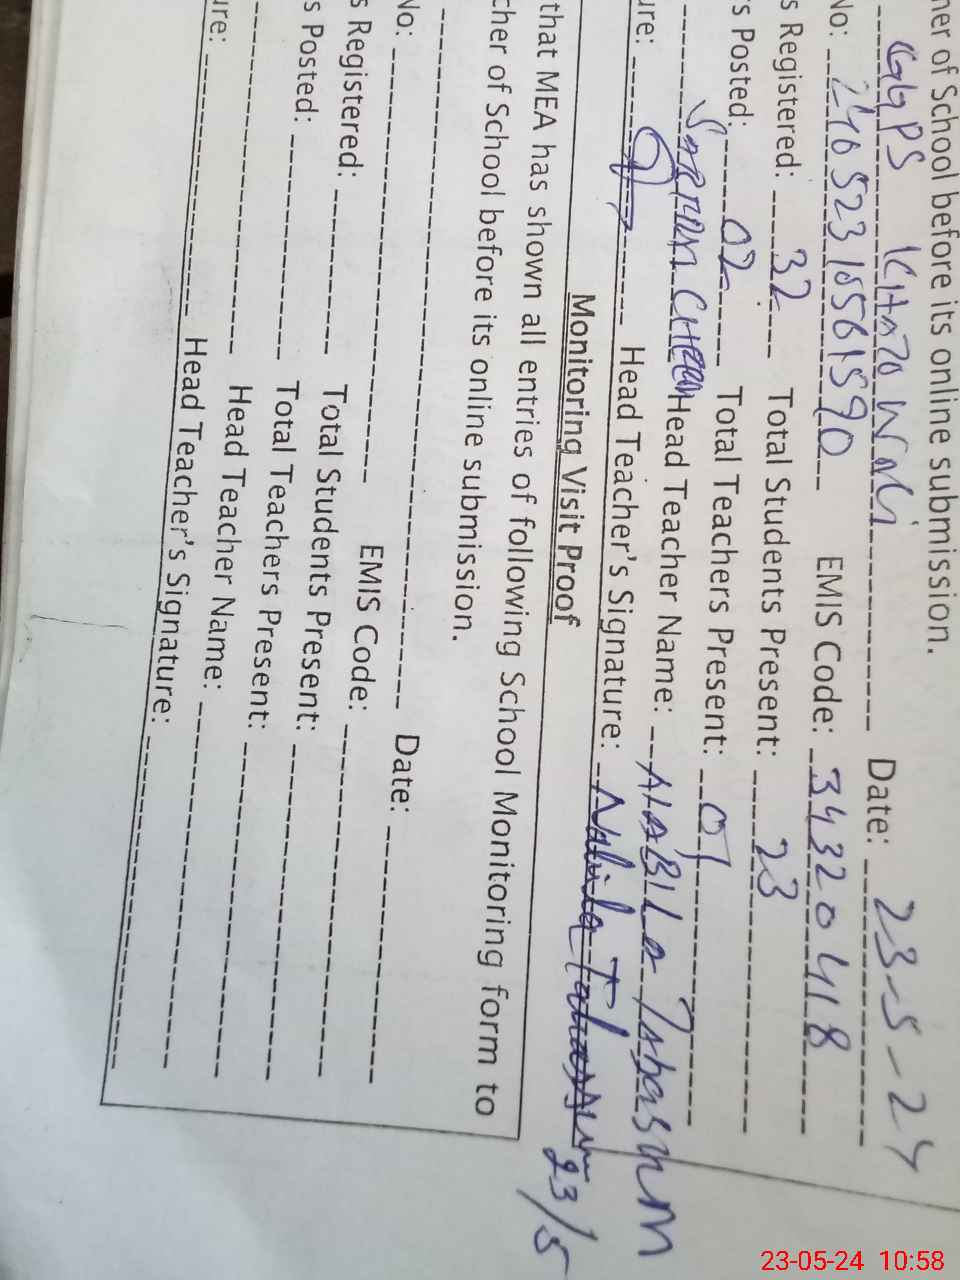 her of School before its online submission.
GGPS KHAZO WALI Date: 23-5-24
No: 24052310561590 EMIS Code: 34320418
s Registered: 32 Total Students Present: 23
s Posted: 02 Total Teachers Present: 01
Head Teacher Name: Tabasum
ure: Head Teacher's Signature: Nabila Tabassum 23/5
Monitoring Visit Proof
that MEA has shown all entries of following School Monitoring form to
cher of School before its online submission.
Date:
No: EMIS Code:
s Registered: Total Students Present:
s Posted: Total Teachers Present:
Head Teacher Name:
ure: Head Teacher's Signature:
23-05-24 10:58